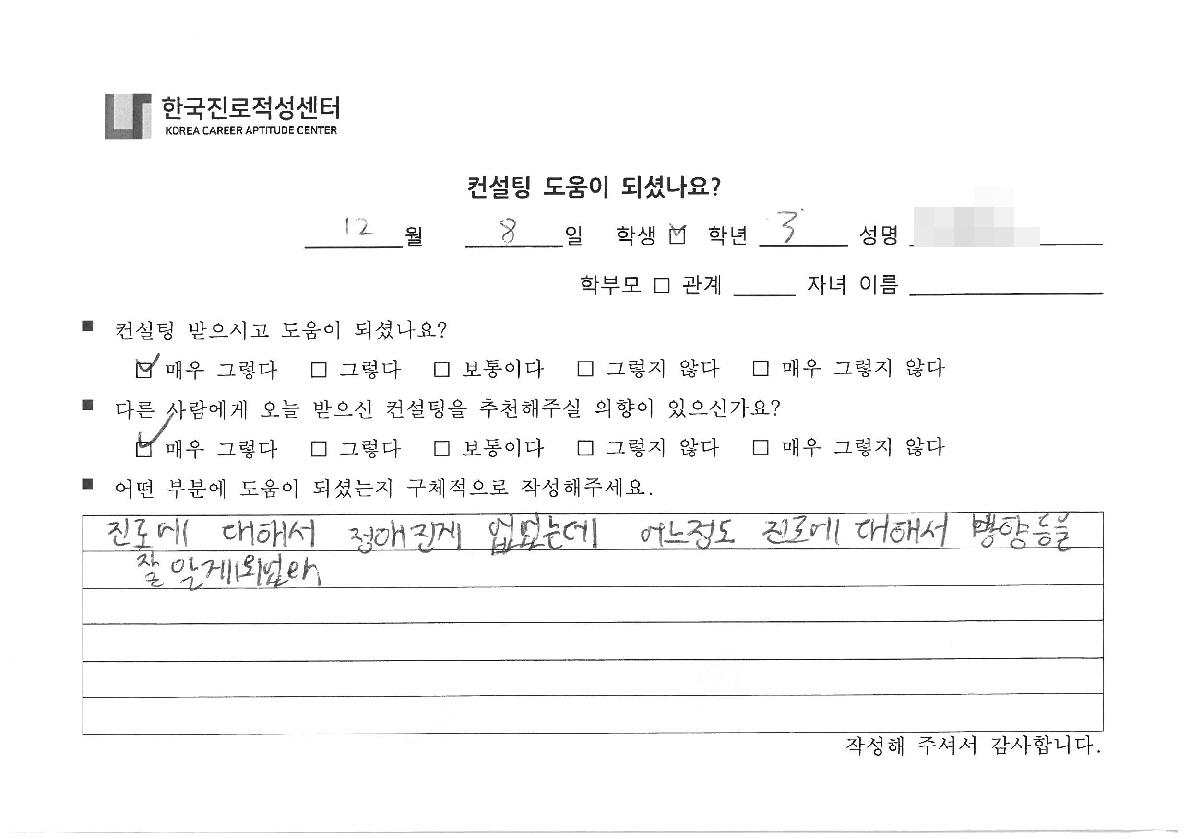 한국진로적성센터
KOREA CAREER APTITUDE CENTER
컨설팅 도움이 되셨나요?
12 월 8 일 학생 ☑ 학년 3 성명
학부모 □ 관계 자녀 이름
■ 컨설팅 받으시고 도움이 되셨나요?
☑ 매우 그렇다 □ 그렇다 □ 보통이다 □ 그렇지 않다 □ 매우 그렇지 않다
■ 다른 사람에게 오늘 받으신 컨설팅을 추천해주실 의향이 있으신가요?
☑ 매우 그렇다 □ 그렇다 □ 보통이다 □ 그렇지 않다 □ 매우 그렇지 않다
■ 어떤 부분에 도움이 되셨는지 구체적으로 작성해주세요.
진로에 대해서 정해진게 없었는데 어느정도 진로에 대해서 방향등을
잘 알게되었다
작성해 주셔서 감사합니다.